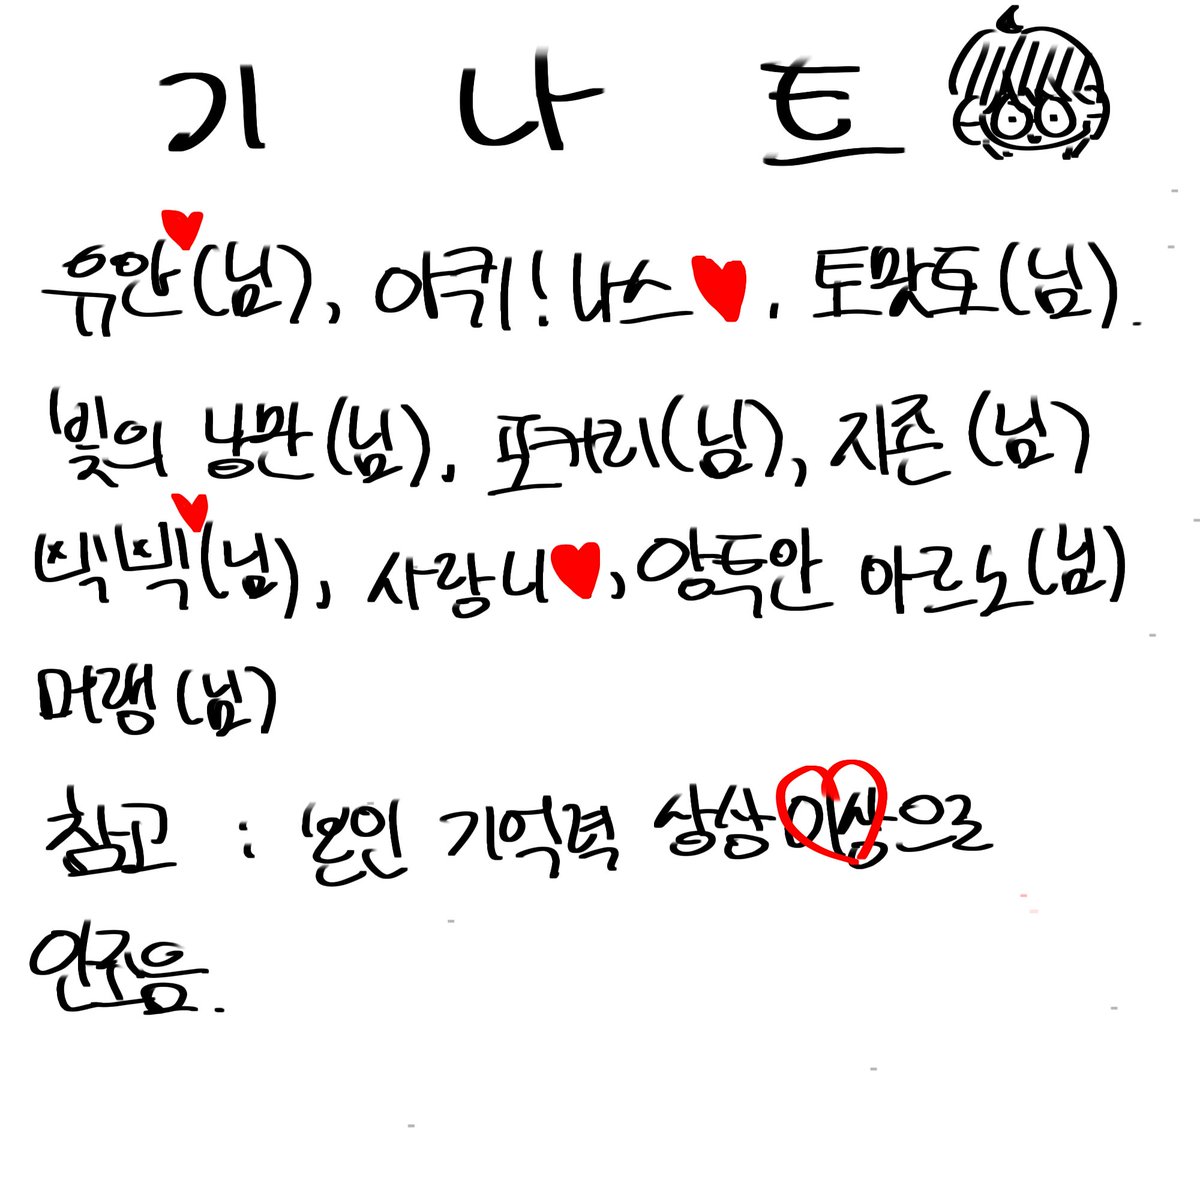 기 나 트
유안♥(님), 아퀴!나스♥, 토맛토(님).
빛의 낭만(님), 포커리(님), 지존(님)
빅빅♥(님), 사랑니♥, 양특안 아르노(님)
머랭(님)
참고 : 본인 기억력 상상이상으로
안좋음.